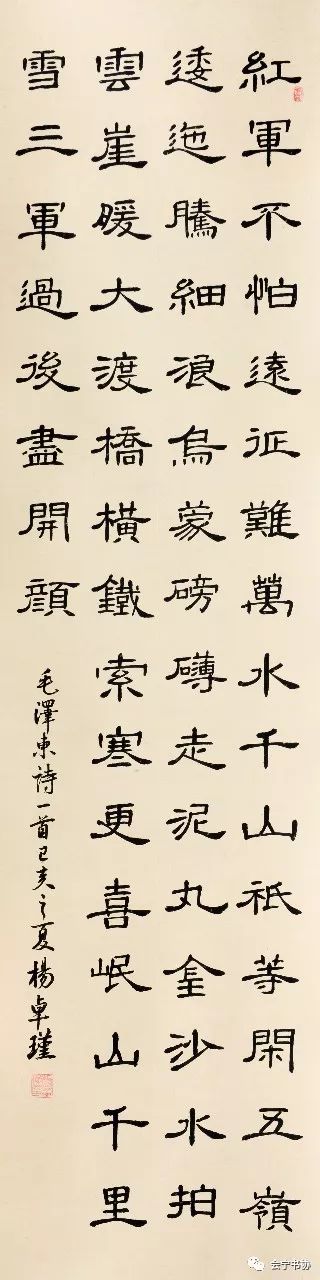 紅軍不怕遠征難萬水千山祇等閑五嶺
逶迤騰細浪烏蒙磅礴走泥丸金沙水拍
雲崖暖大渡橋橫鐵索寒更喜岷山千里
雪三軍過後盡開顔
毛澤東詩一首己亥之夏楊卓瑾
会宁书协